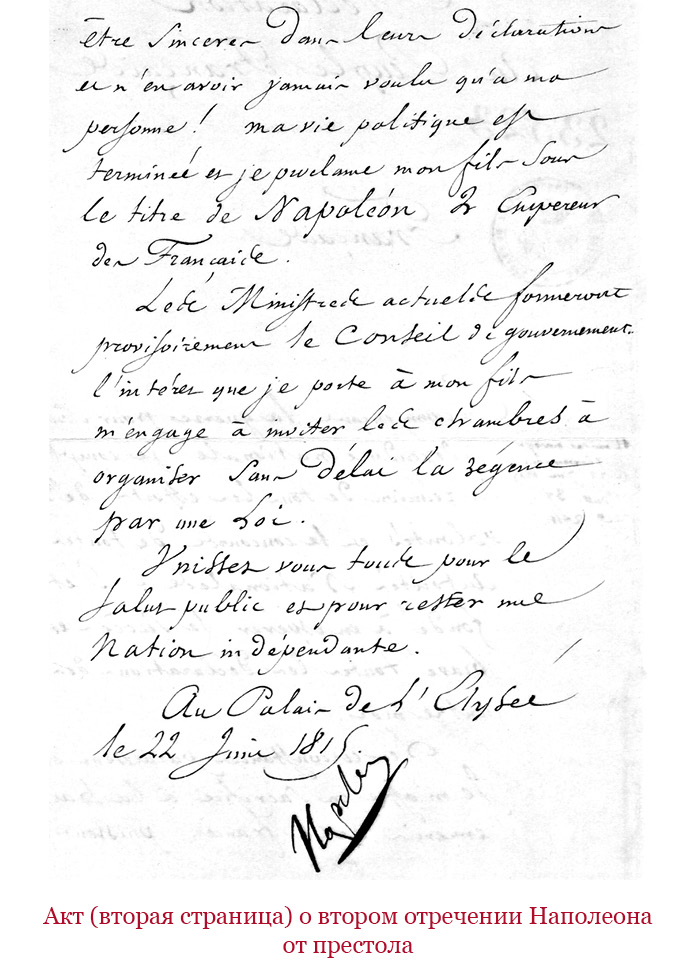 être sinceres dans leurs déclarations
et n'en avoir jamais voulu qu'à ma
personne! ma vie politique est
terminéé et je proclame mon fils sous
le titre de Napoléon 2 Empereur
des Françaisc.
Lesc Ministresc actuelsc formeront
provisoirement le Conseil de gouvernement.
l'intéret que je porte à mon fils
m'engage à inviter lesc chambres à
organiser sans délai la régence
par une Loi.
Unissez vous tousc pour le
salut public et pour rester une
Nation indépendante.
Au Palais de L'Elyséé
le 22 Juin 1815.
Napoleon
Акт (вторая страница) о втором отречении Наполеона
от престола